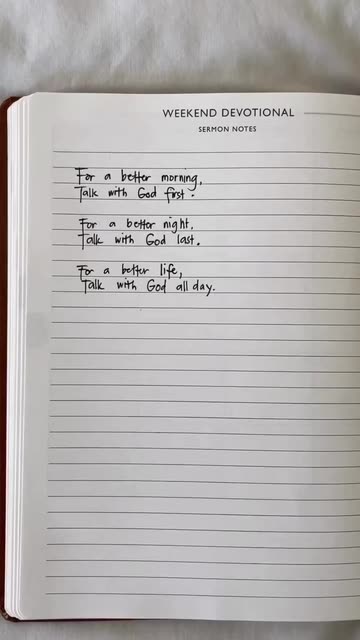 WEEKEND DEVOTIONAL
SERMON NOTES
For a better morning,
Talk with God first.
For a better night,
Talk with God last.
For a better life,
Talk with God all day.